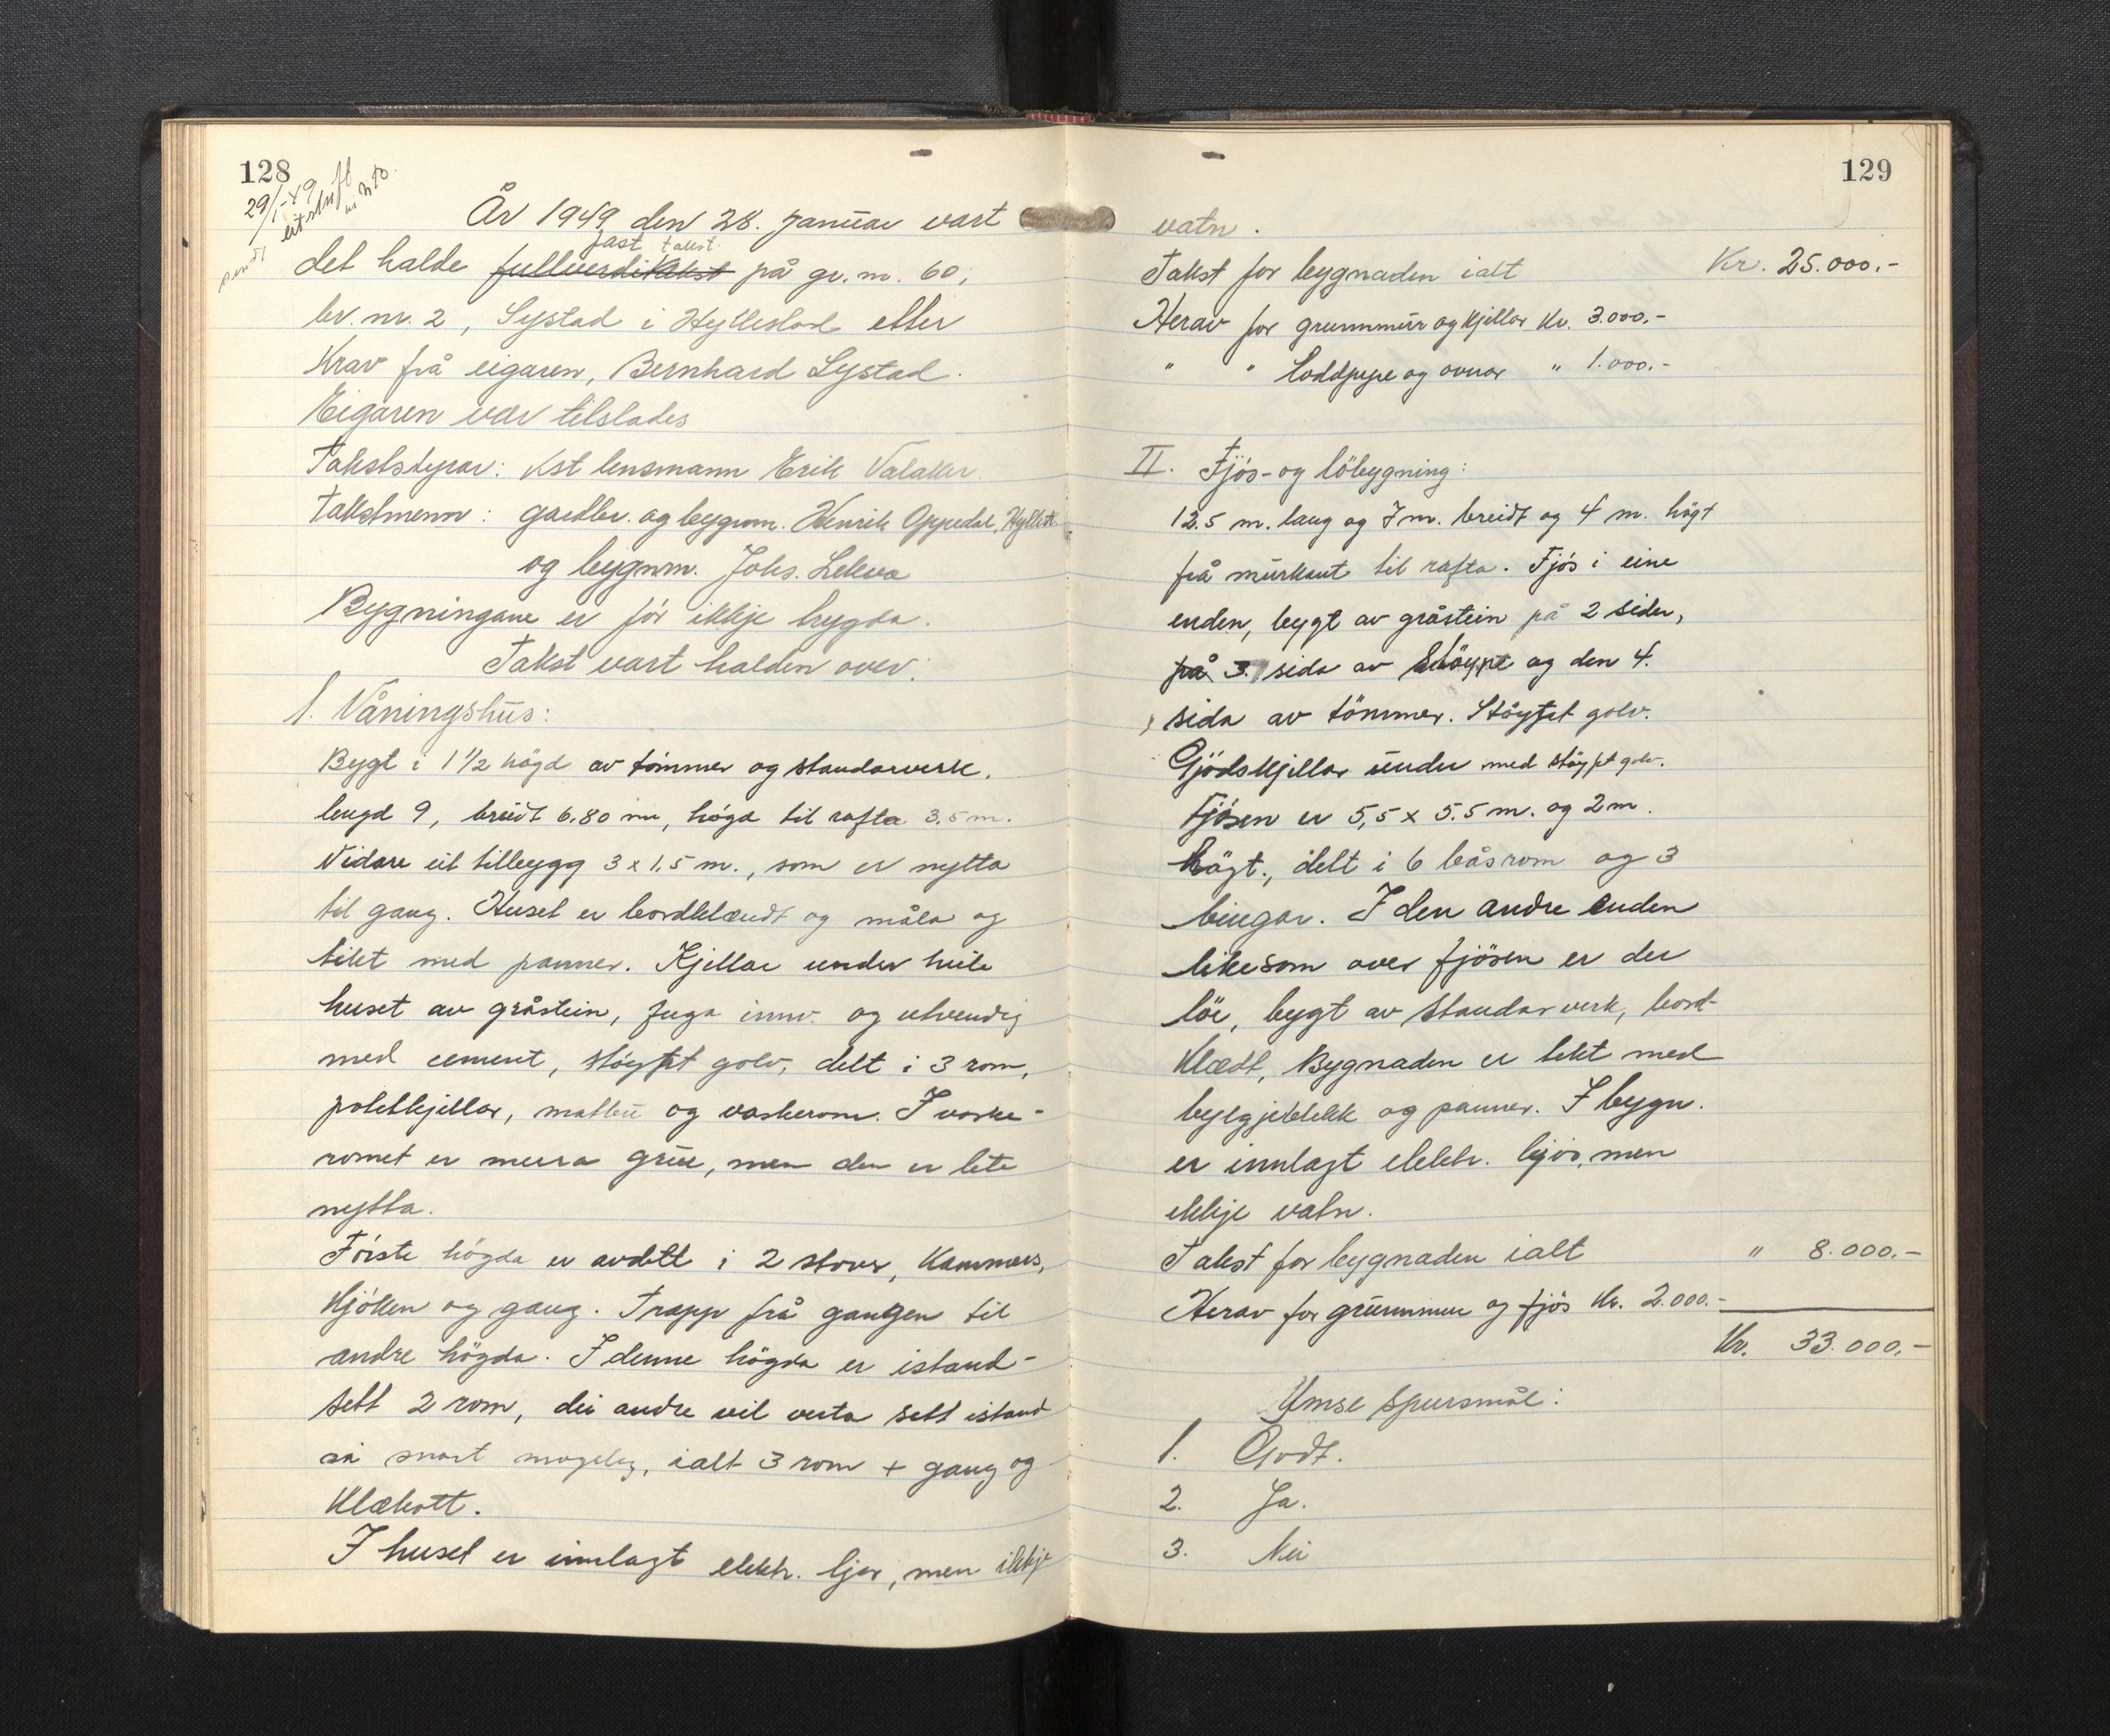 128
29/1-49
sendt utskrift
År 1949 den 28. januar vart
fast takst.
det halde fullverditakst på gr. nr. 60,
br. nr. 2, Systad i Hyllestad etter
krav frå eigaren, Bernhard Systad.
Eigaren var tilstades
Takststyrar: Kst lensmann Erik Valaker.
Takstmenn: gardbr. og bygnm. Henrik Oppedal, Hyllest.
og bygnm. Johs. Lekva
Bygningane er før ikkje trygda.
Takst vart halden over:
1. Våningshus:
Bygt i 1 1/2 högd av tömmer og standarverk,
lengd 9, breidt 6.80 m, högd til rafta 3.5 m.
Vidare eit tilbygg 3 x 1,5 m., som er nytta
til gang. Huset er bordklændt og måla og
tekt med panner. Kjellar under heile
huset av gråstein, fuga innv. og utvendig
med cement, støypt golv, delt i 3 rom,
potetkjellar, matbu og vaskerom. I vaske-
romet er murra grue, men den er lite
nytta.
Fórste högda er avdelt i 2 stover, kammers,
kjöken og gang. Trapp frå gangen til
andre högda. I denne högda er istand-
sett 2 rom, dei andre vil verta sett istand
så snart mogeleg, ialt 3 rom + gang og
klækott.
I huset er innlagt elektr. ljos, men ikkje
129
vatn.
Takst for bygnaden ialt Kr. 25.000.-
Herav for grunnmur og kjellar Kr. 3.000.-
" " Loddpipe og ovnar " 1.000.-
II. Fjös- og löbygning:
12.5 m. lang og 7 m. breidt og 4 m. högt
frå murkant til rafta. Fjós i eine
enden, bygt av gråstein på 2 sider,
på 3. sida av stöype og den 4.
sida av tömmer. Stöypt golv.
Gjödskjellar under med stöypt golv.
Fjösen er 5,5 x 5.5 m. og 2 m.
högt., delt i 6 båsrom og 3
bingar. I den andre enden
likesom over fjösen er der
löe, bygt av standarverk, bord-
klædt, Bygnaden er tekt med
bylgjeblekk og panner. I bygn.
er innlagt elektr. ljos, men
ikkje vatn.
Takst for bygnaden ialt " 8.000.-
Herav for grunnmur og fjös Kr. 2.000.-
Kr. 33.000.-
Ymse spursmål:
1. Godt.
2. Ja.
3. Nei